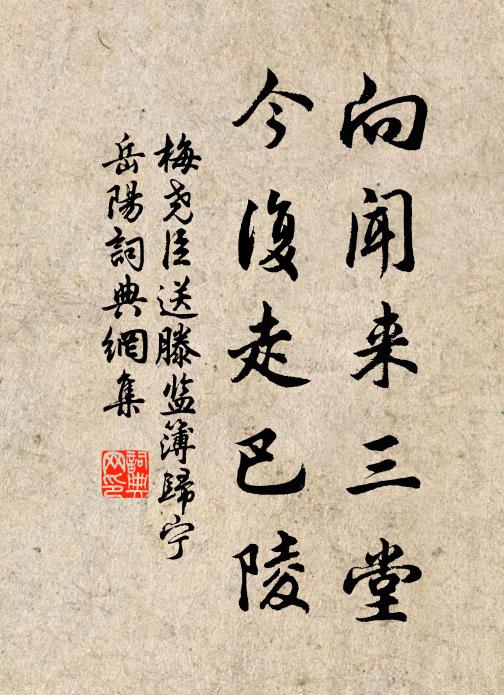 向闻来三堂
今復走巴陵
梅尧臣送滕监簿歸宁
岳陽詞典網集
詞典
网印